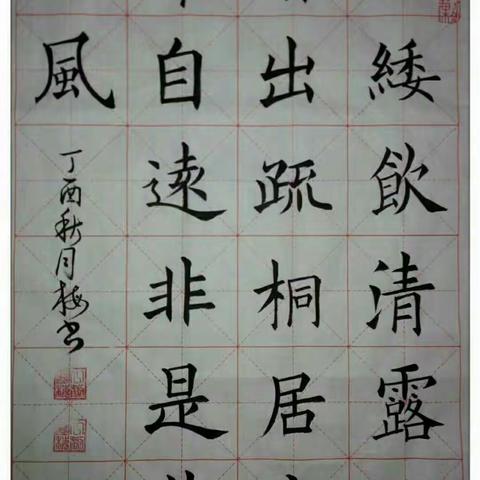 緌飲清露
出疏桐居
自遠非是
風
丁酉秋月梅书